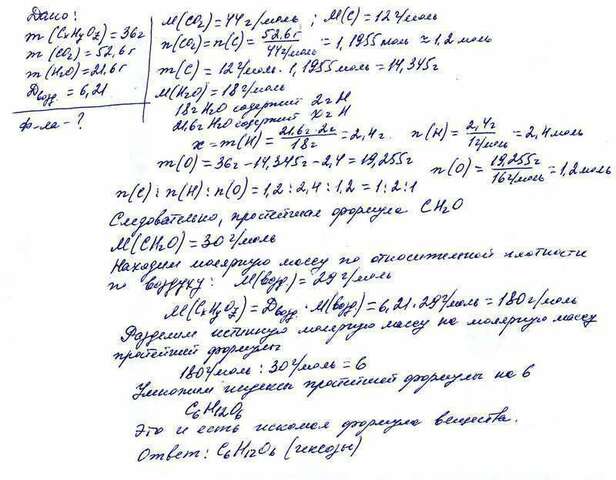 Дано:
m(CxHyOz)=36г
m(CO₂)=52,6г
m(H₂O)=21,6г
Dвозд.=6,21
ф-ла-?
M(CO₂)=44г/моль ; M(C)=12г/моль
n(CO₂)=n(C)=52,6г/44г/моль=1,1955моль≈1,2моль
m(C)=12г/моль·1,1955моль=14,345г
M(H₂O)=18г/моль
18г H₂O содержит 2г H
21,6г H₂O содержит xг H
x=m(H)=21,6г·2г/18г=2,4г. n(H)=2,4г/1г/моль=2,4моль
m(O)=36г-14,345г-2,4=19,255г n(O)=19,255г/16г/моль=1,2моль
n(C):n(H):n(O)=1,2:2,4:1,2=1:2:1
Следовательно, простейшая формула CH₂O
M(CH₂O)=30г/моль
Находим молярную массу по относительной плотности
по воздуху: M(возд)=29г/моль
M(CxHyOz)=Dвозд.·M(возд)=6,21·29г/моль=180г/моль
Разделим истинную молярную массу на молярную массу
простейшей формулы
180г/моль:30г/моль=6
Умножим индексы простейшей формулы на 6
C₆H₁₂O₆
Это и есть искомая формула вещества.
Ответ: C₆H₁₂O₆ (гексозы)